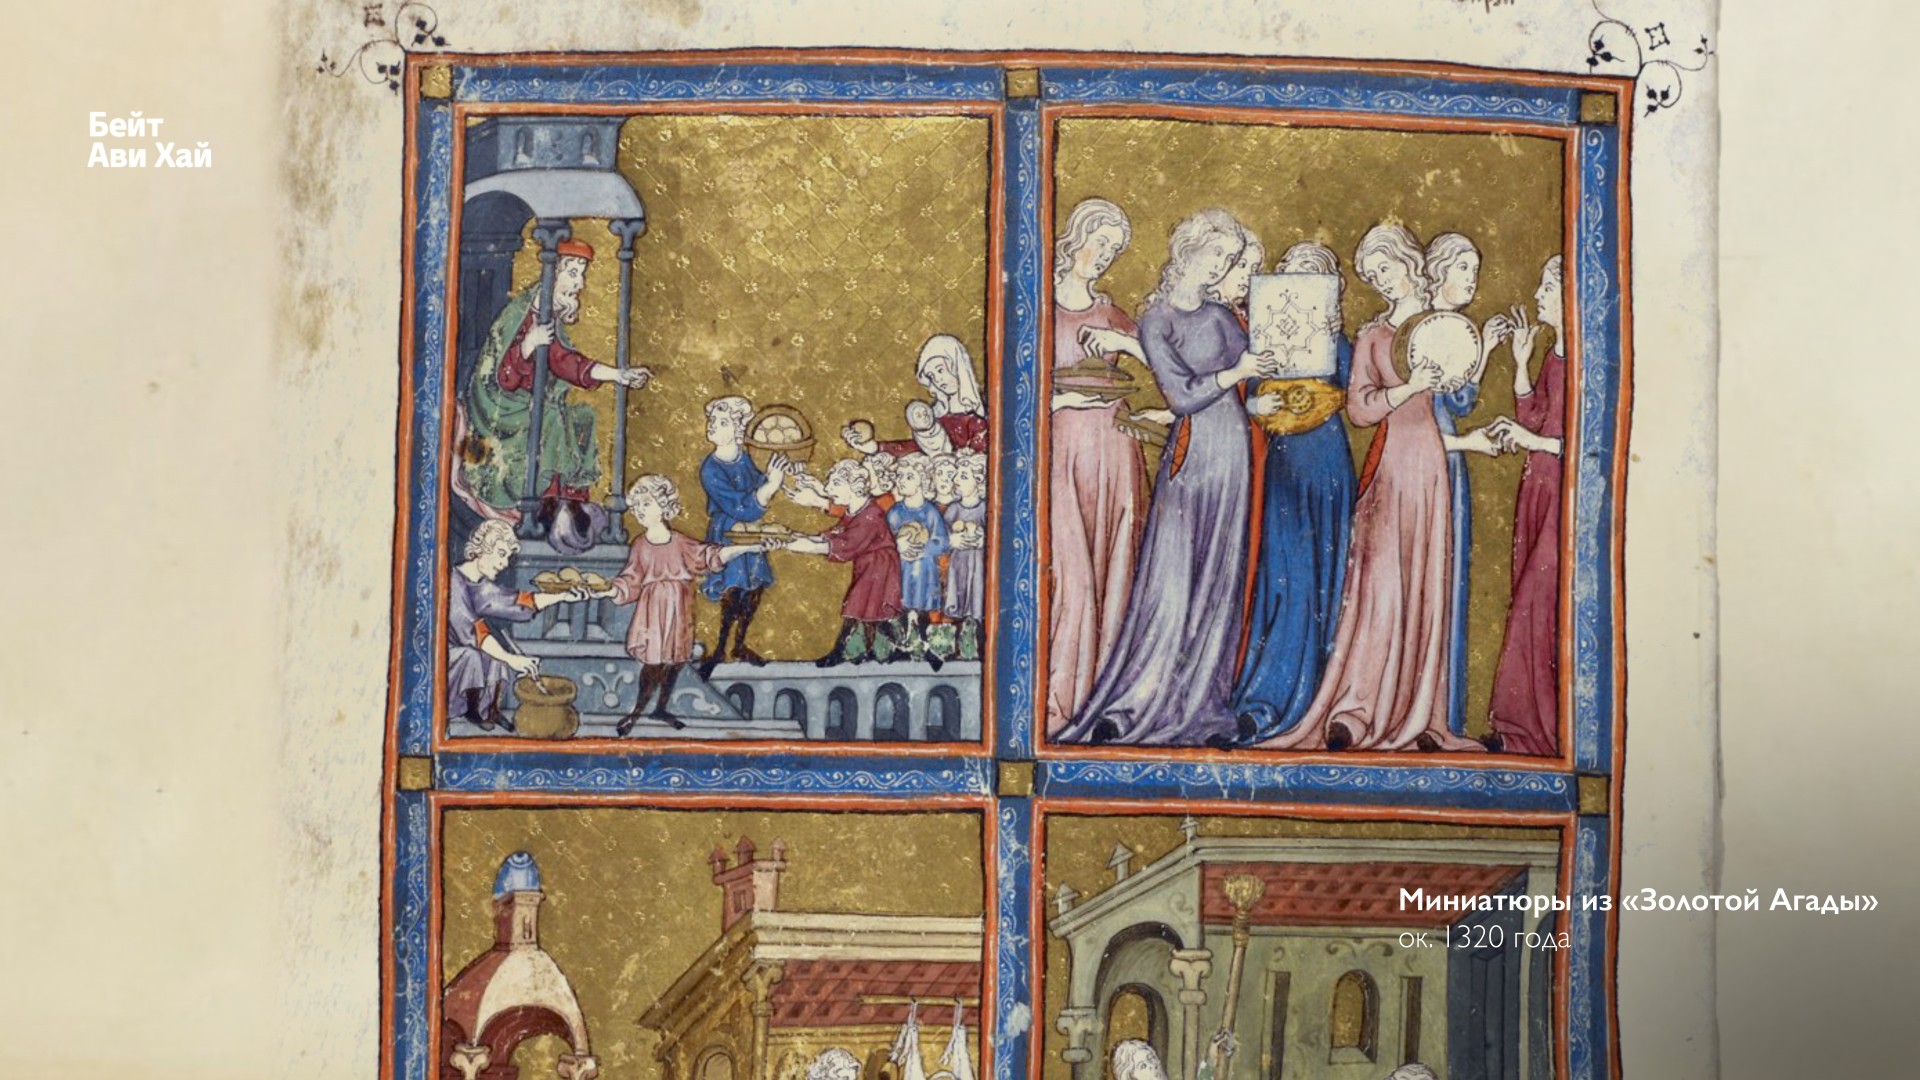 Бейт
Ави Хай
Миниатюры из «Золотой Агады»
ок. 1320 года